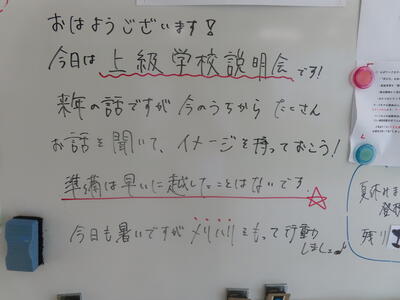 おはようございます!
今日は上級学校説明会です!
来年の話ですが今のうちから たくさん
お話を聞いて、イメージを持っておこう!
準備は早いに越したことはないです。
今日も暑いですが メリハリをもって行動
しましょ♪
夏休みま
登校
残り